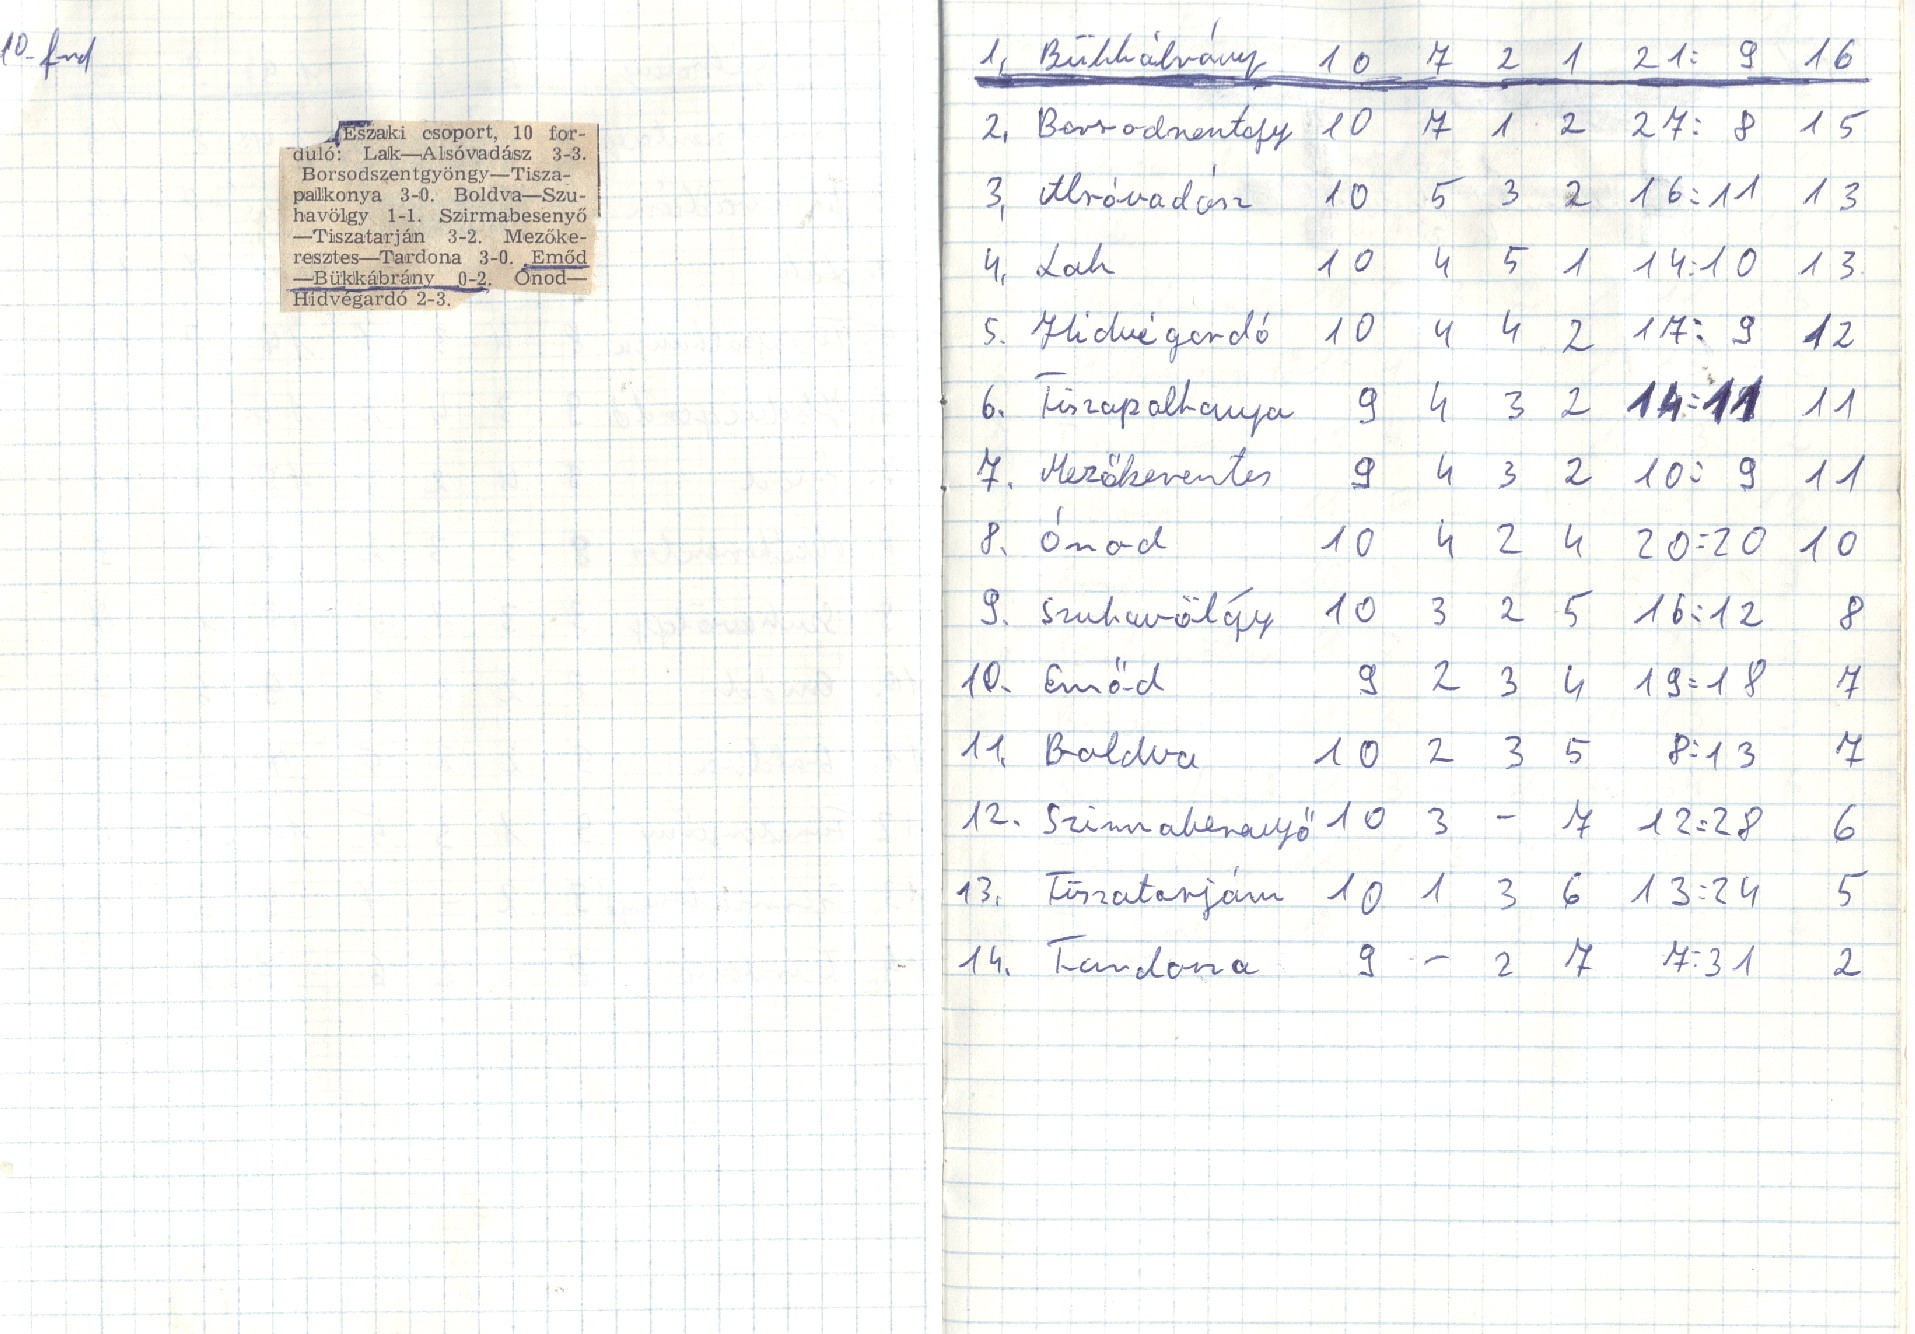 10. frd
Északi csoport, 10 for-
duló: Lak—Alsóvadász 3-3.
Borsodszentgyöngy—Tisza-
palkonya 3-0. Boldva—Szu-
havölgy 1-1. Szirmabesenyő
—Tiszatarján 3-2. Mezőke-
resztes—Tardona 3-0. Emőd
—Bükkábrány 0-2. Ónod—
Hidvégardó 2-3.
1. Bükkábrány 10 7 2 1 21: 9 16
2. Borsodszentgy 10 7 1 2 27: 8 15
3. Alsóvadász 10 5 3 2 16:11 13
4. Lak 10 4 5 1 14:10 13
5. Hidvégardó 10 4 4 2 17: 9 12
6. Tiszapalkonya 9 4 3 2 14:11 11
7. Mezőkeresztes 9 4 3 2 10: 9 11
8. Ónod 10 4 2 4 20:20 10
9. Szuhavölgy 10 3 2 5 16:12 8
10. Emőd 9 2 3 4 19:18 7
11. Boldva 10 2 3 5 8:13 7
12. Szirmabesenyő 10 3 - 7 12:28 6
13. Tiszatarján 10 1 3 6 13:24 5
14. Tardona 9 - 2 7 7:31 2